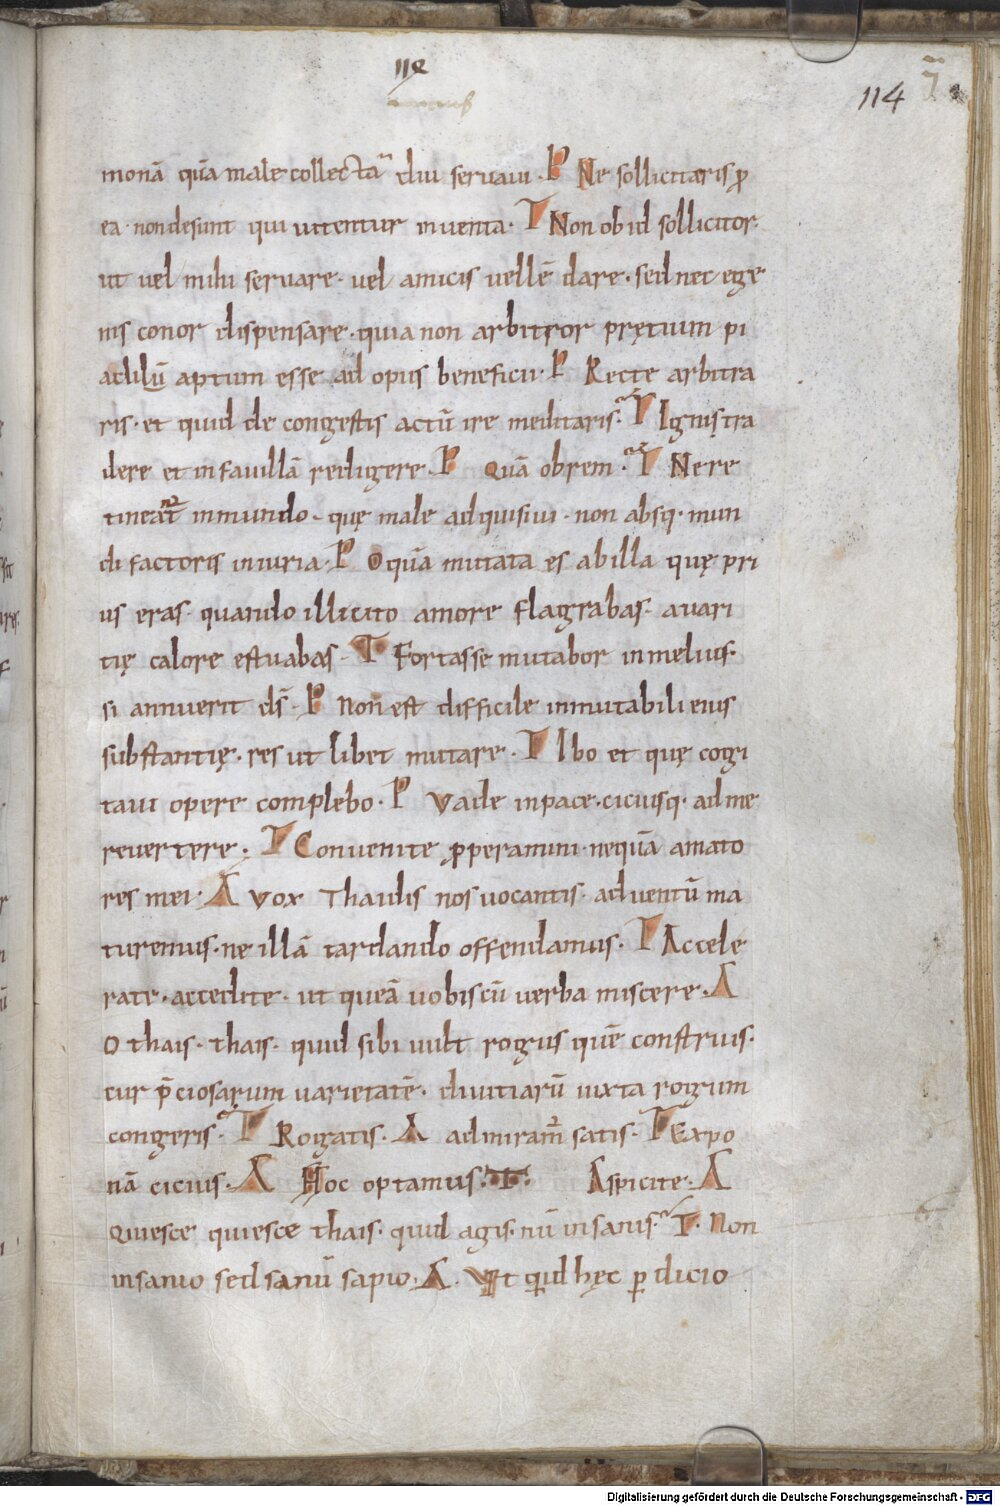 118
114
monā quā male collectā diu seruaui. P Ne solliciteris ꝓ
ea· non desunt qui utentur inuenta. T Non ob id sollicitor·
ut uel mihi seruare· uel amicis uellē dare· sed nec ege
nis conor dispensare· quia non arbitror prętium pi
aculū aptum esse ad opus beneficii· P Recte arbitra
ris· et quid de congestis actū ire meditaris. T Igni stra
dere et in fauillā redigere. P Quā obrem. T Ne re
tineat᷑ in mundo· quę male adquisiui· non absq· mun
di factoris iniuria. P O quā mutata es ab illa quę pri
us eras· quando illicito amore flagrabas· auari
tię calore estuabas· T Fortasse mutabor in melius·
si annuerit ds̄· P Non est difficile inmutabili eius
substantię· res ut libet mutare· T Ibo et quę cogi
taui opere complebo· P Vade in pace· ciciusq· ad me
reuertere· T Conuenite ꝓperamini· nequā amato
res mei· A Vox Thaidis nos uocantis· aduentū ma
turemus· ne illā tardando offendamus· T Accele
rate· accedite· ut queā uobiscū uerba miscere· A
O thais· thais· quid sibi uult rogus quē construis·
cur p̄ciosarum uarietatē· diuitiarū iuxta rogum
congeris· T Rogatis· A admiram᷑ satis· T Expo
nā cicius· A Hoc optamus· T· Aspicite· A
Quiesce quiesce thais· quid agis· nū insanis· T· Non
insanio sed sanū sapio· A· Vt qid hęc ꝑdicio
Digitalisierung gefördert durch die Deutsche Forschungsgemeinschaft - DFG